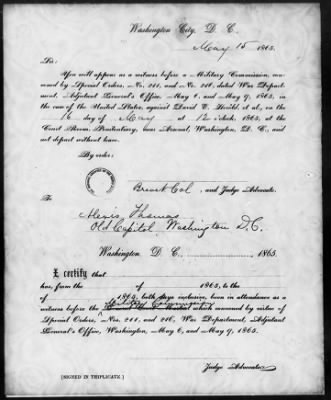 Washington City, D. C.
May 15 1865.
Sir:
You will appear as a witness before a Military Commission, con-
vened by Special Orders, No. 211, and No. 216, dated War Depart-
ment, Adjutant General's Office, May 6, and May 9, 1865, in
the case of the United States, against David E. Herold et al., on
the 16 day of May at 12 o'clock, 1865, at the
Court Room, Penitentiary, near Arsenal, Washington, D. C., and
not depart without leave.
By order:
Brevet Col, and Judge Advocate.
To
Alexis Thomas
Old Capitol, Washington D.C.
Washington, D. C., 1865.
I certify that
has, from the of 1865, to the
of 1865, both days inclusive, been in attendance as a
Military Commission
witness before the General Court Martial which convened by virtue of
Special Orders, Nos. 211, and 216, War Department, Adjutant
General's Office, Washington, May 6, and May 9, 1865.
Judge Advocate.
[SIGNED IN TRIPLICATE.]